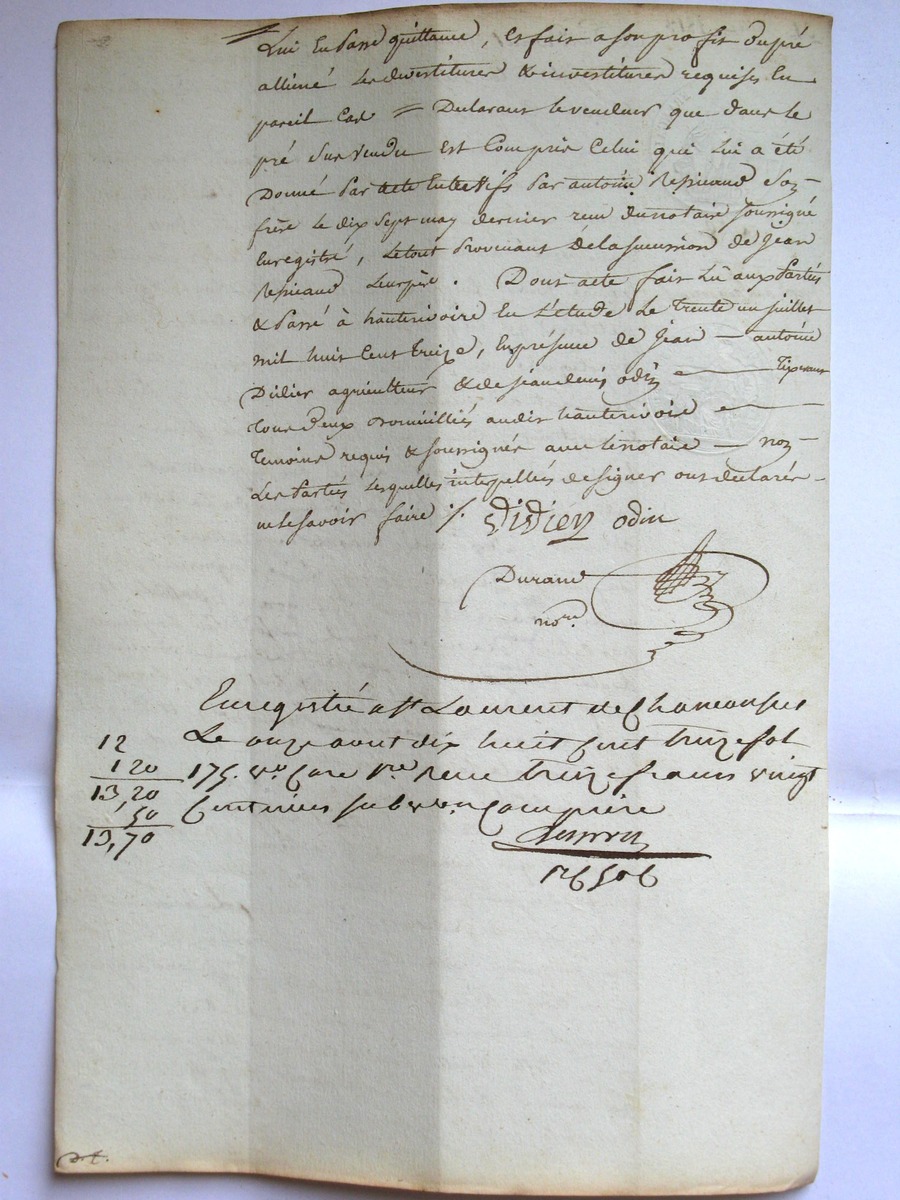 Lui en passe quittance, et fait a son profit du pré
alliené les devestitures & investitures requises en
pareil cas = Declarant le vendeur que dans le
pré sus vendu est compris celui qui lui a été
Donné par acte entre vifs par antoine son
frère le dix sept may dernier reçu du notaire soussigné
Enregistré, le tout provenant de la succession de jean
leur père. Dont acte fait lu aux parties
& passé à hauterivoire en l'étude le trente un juillet
mil huit cent treize, en présence de jean — antoine
Didier agriculteur & de jean denis odin — Tisserant
tous deux domiciliés audit hauterivoire —
temoins requis & soussignés avec le notaire — non
les parties lesquelles interpellées de signer ont déclaré
ne le savoir faire ./.
Didier odin
Durand
nore.
Enregistré a st Laurent de Chamousset
Le onze aout dix huit cent treize fol
175. vo. Case reçu treize francs vingt
Centimes subvon. Comprise
12
1 20
13,20
50
13,70